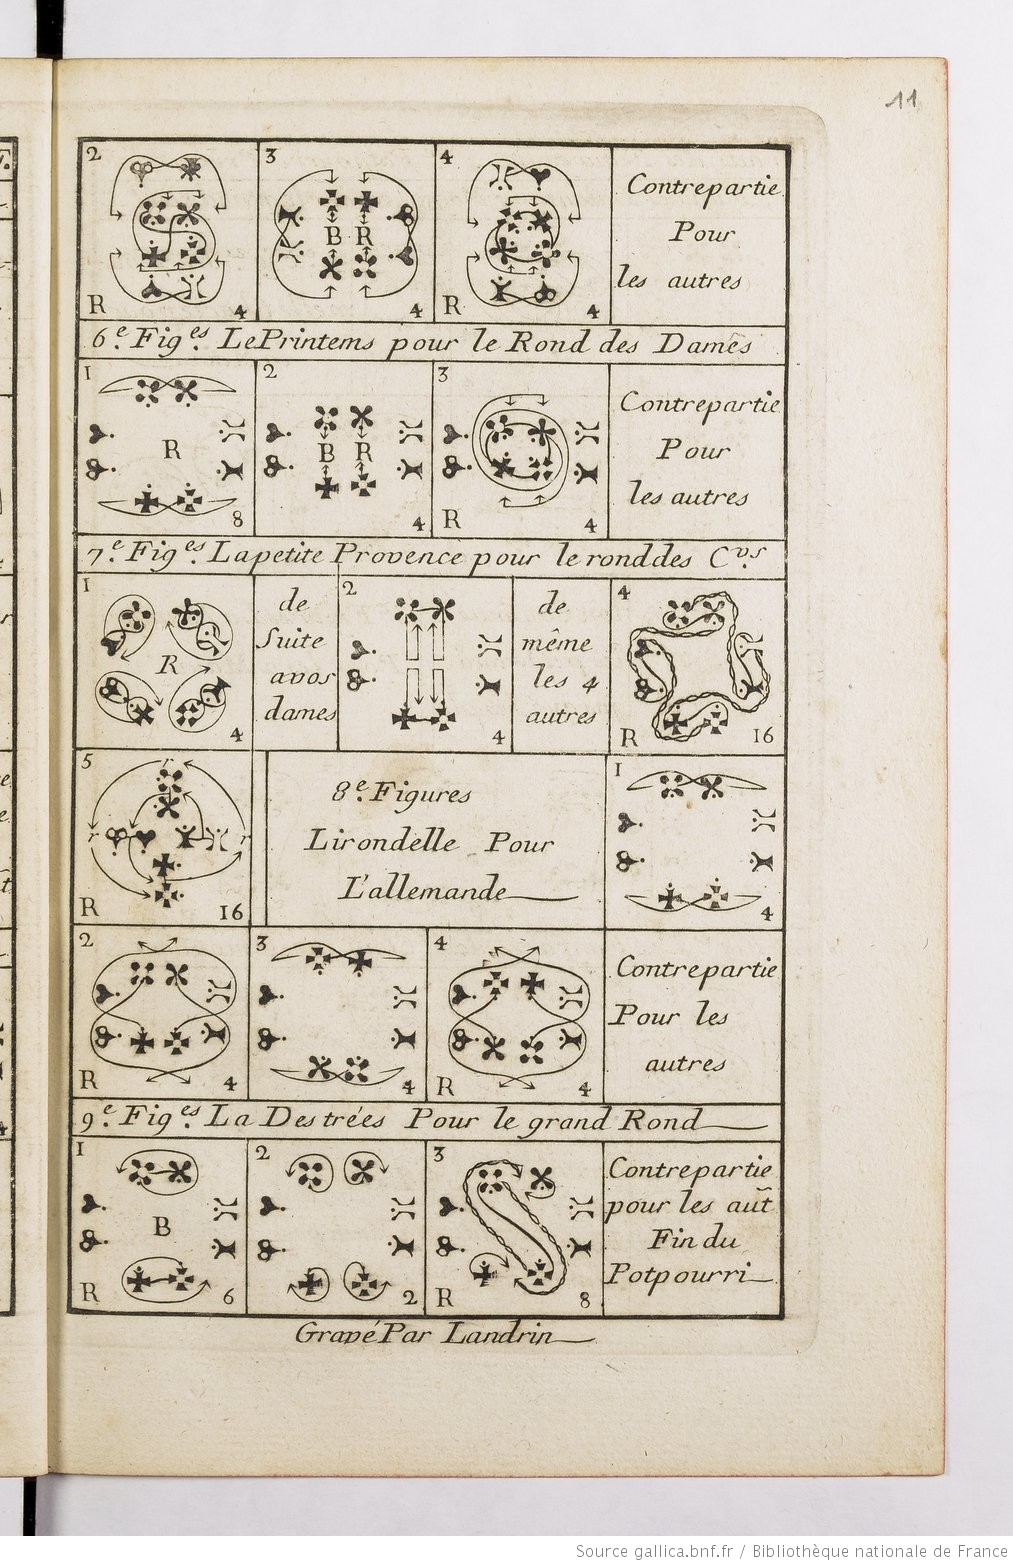 11
2 3 4 Contrepartie
Pour
B R
les autres
R 4 4 R 4
6.e Fig.es Le Printems pour le Rond des Dames
1 2 3 Contrepartie
R B R Pour
les autres
8 4 R 4
7.e Fig.es La petite Provence pour le rond des C.vs
1 de 2 de 4
Suite même
R avos les 4
dames autres
4 4 R 16
5 r 8.e Figures 1
r r Lirondelle Pour
L'allemande
R 16 4
2 3 4 Contrepartie
Pour les
autres
R 4 4 R 4
9.e Fig.es La Destrées Pour le grand Rond
1 2 3 Contrepartie
pour les aut̃
B Fin du
Potpourri
R 6 2 R 8
Gravé Par Landrin
Source gallica.bnf.fr / Bibliothèque nationale de France